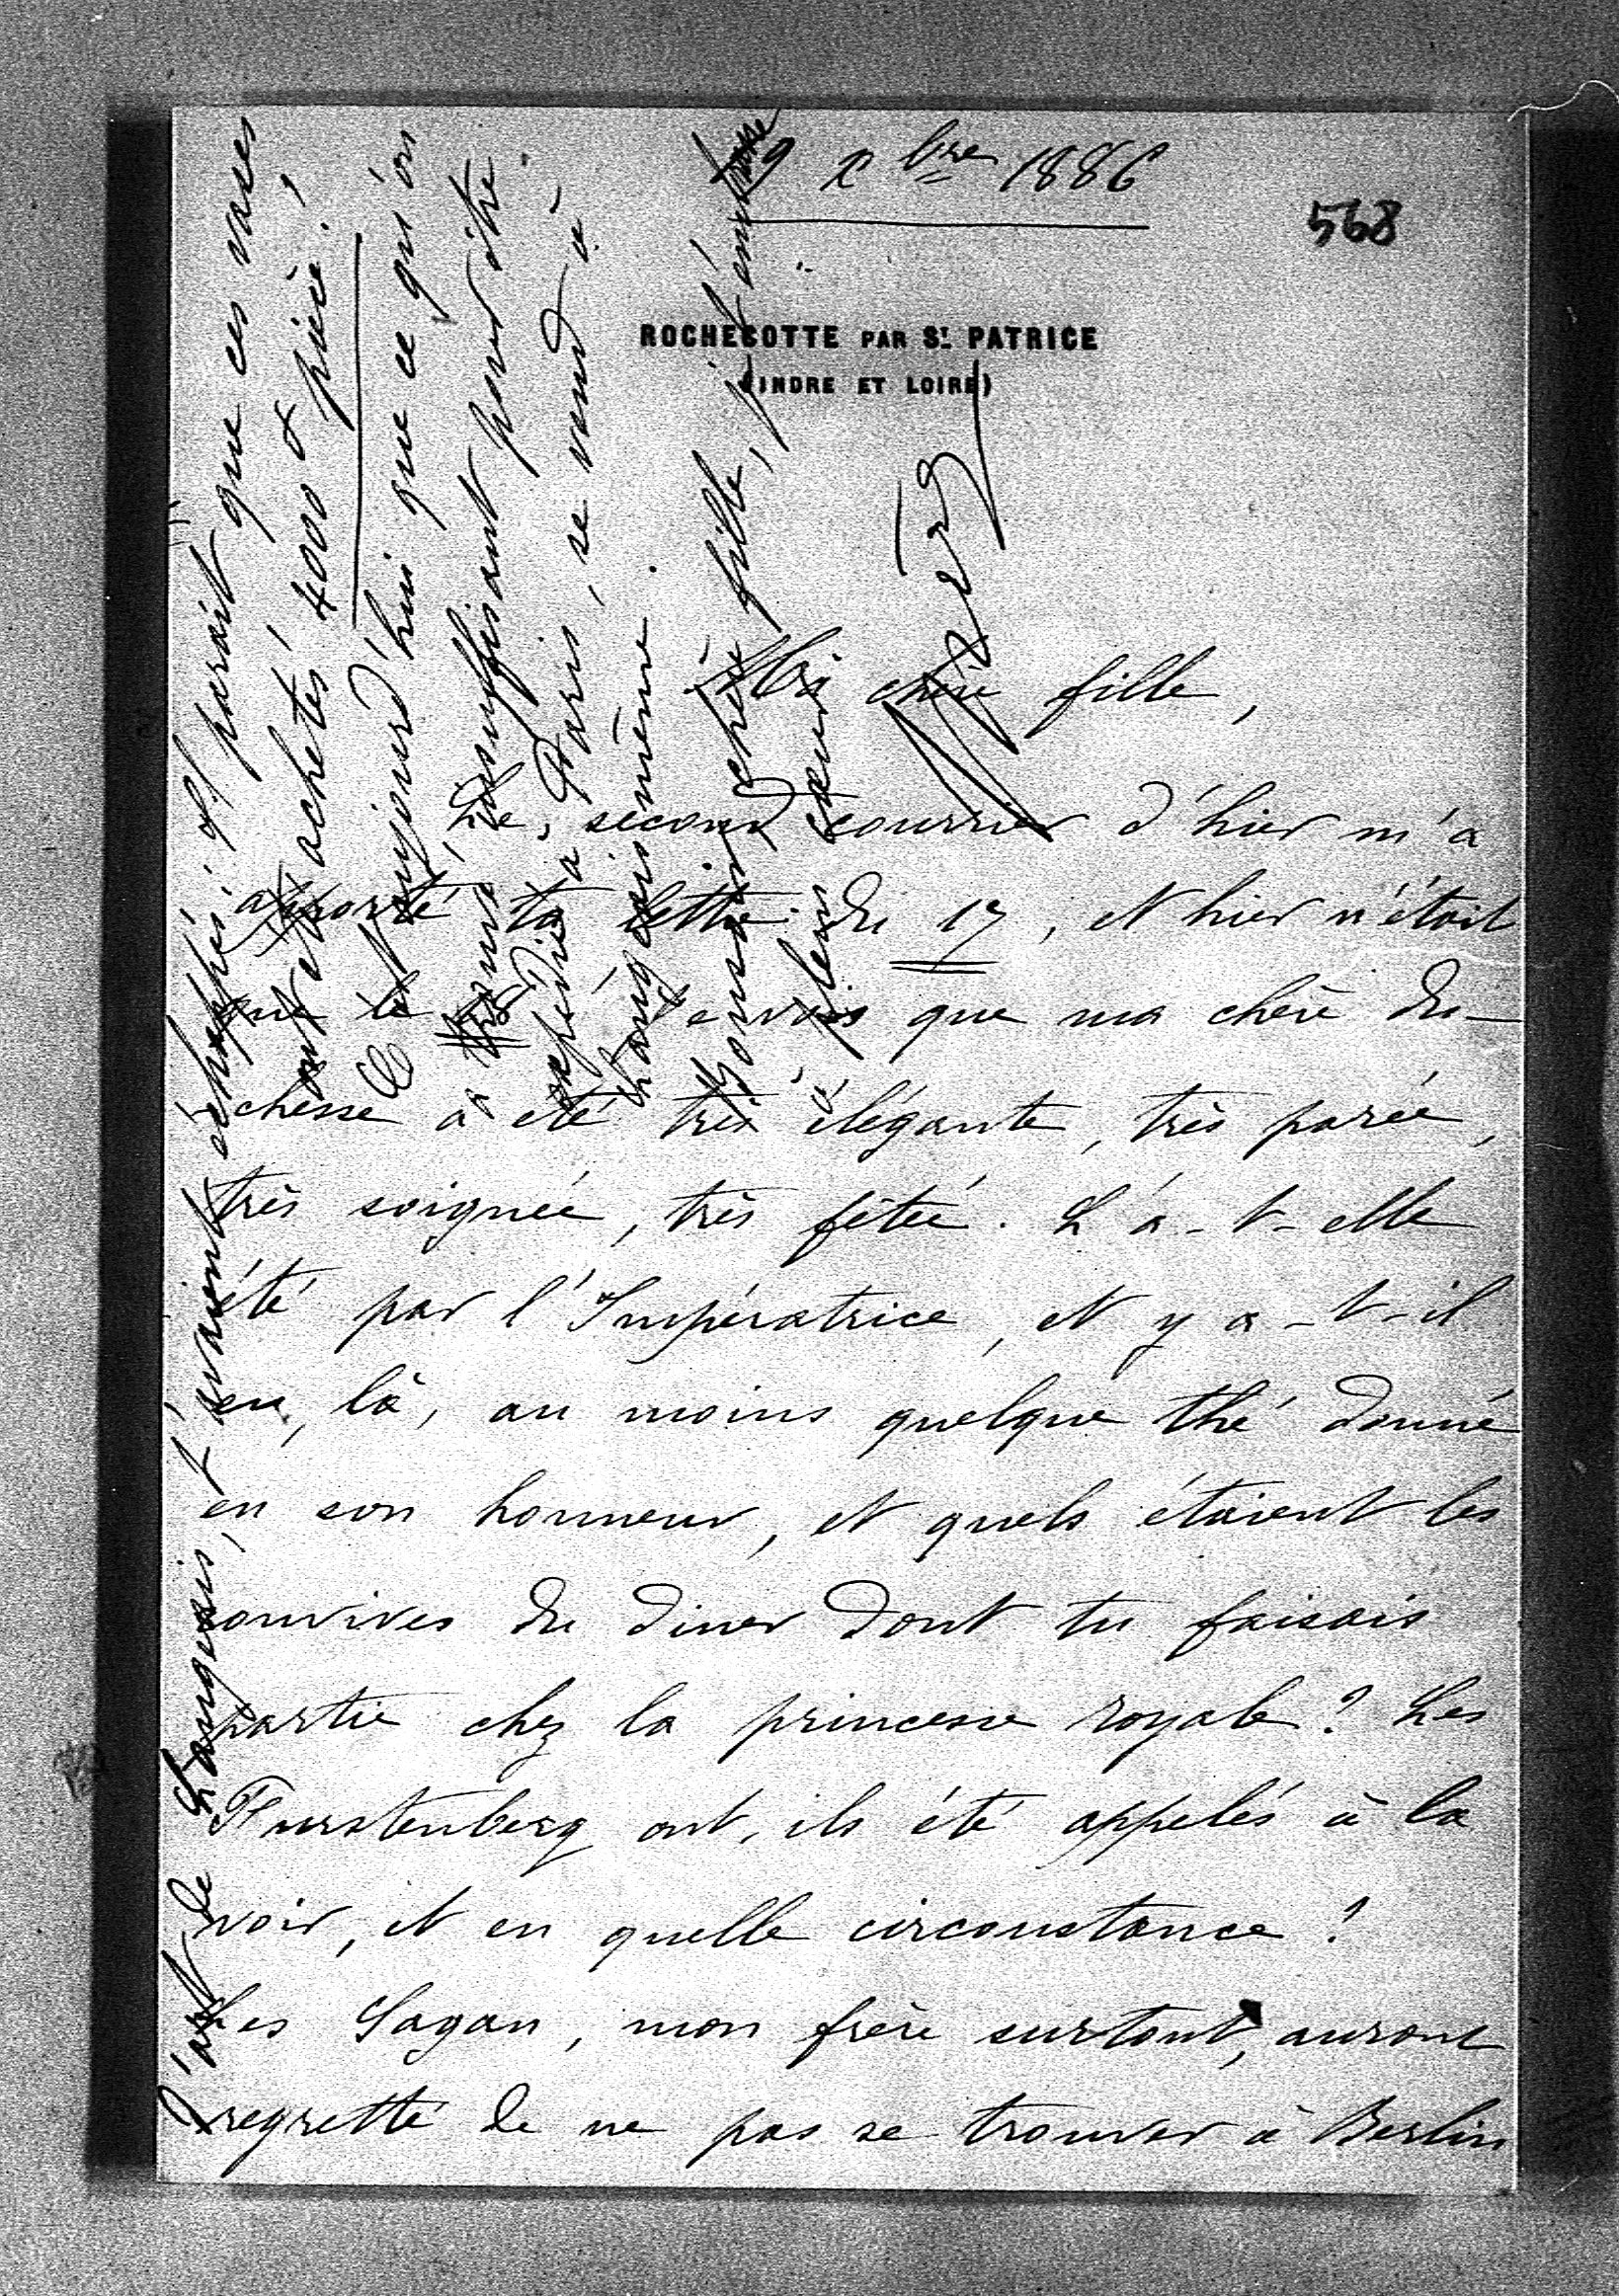 19 Xbre 1886
568
ROCHECOTTE PAR ST. PATRICE
(INDRE ET LOIRE)
Ma chère fille,
Le second courrier d'hier m'a
apporté ta lettre du 17, et hier n'était
que le Je vois que ma chère du-
chesse a été très élégante, très parée,
très soignée, très fêtée. L'a-t-elle
été par l'Impératrice, et y a-t-il
eu, là, au moins quelque thé donné
en son honneur, et quels étaient les
convives du diner dont tu faisais
partie chez la princesse royale? Les
Furstenberg ont-ils été appelés à la
voir, et en quelle circonstance?
Les Sagan, mon frère surtout, auront
regretté de ne pas se trouver à Berlin
l'art de Langeais, t'avaient échappé. Il parait que ces vases
ont été achetés 4000 f pièce!
C'est aujourd'hui que ce qu'on
a trouvé insuffisant pour être
expédié à Paris, se vend à
Langeais même.
Bonsoir, chère fille, je t'embrasse
à plein cœur